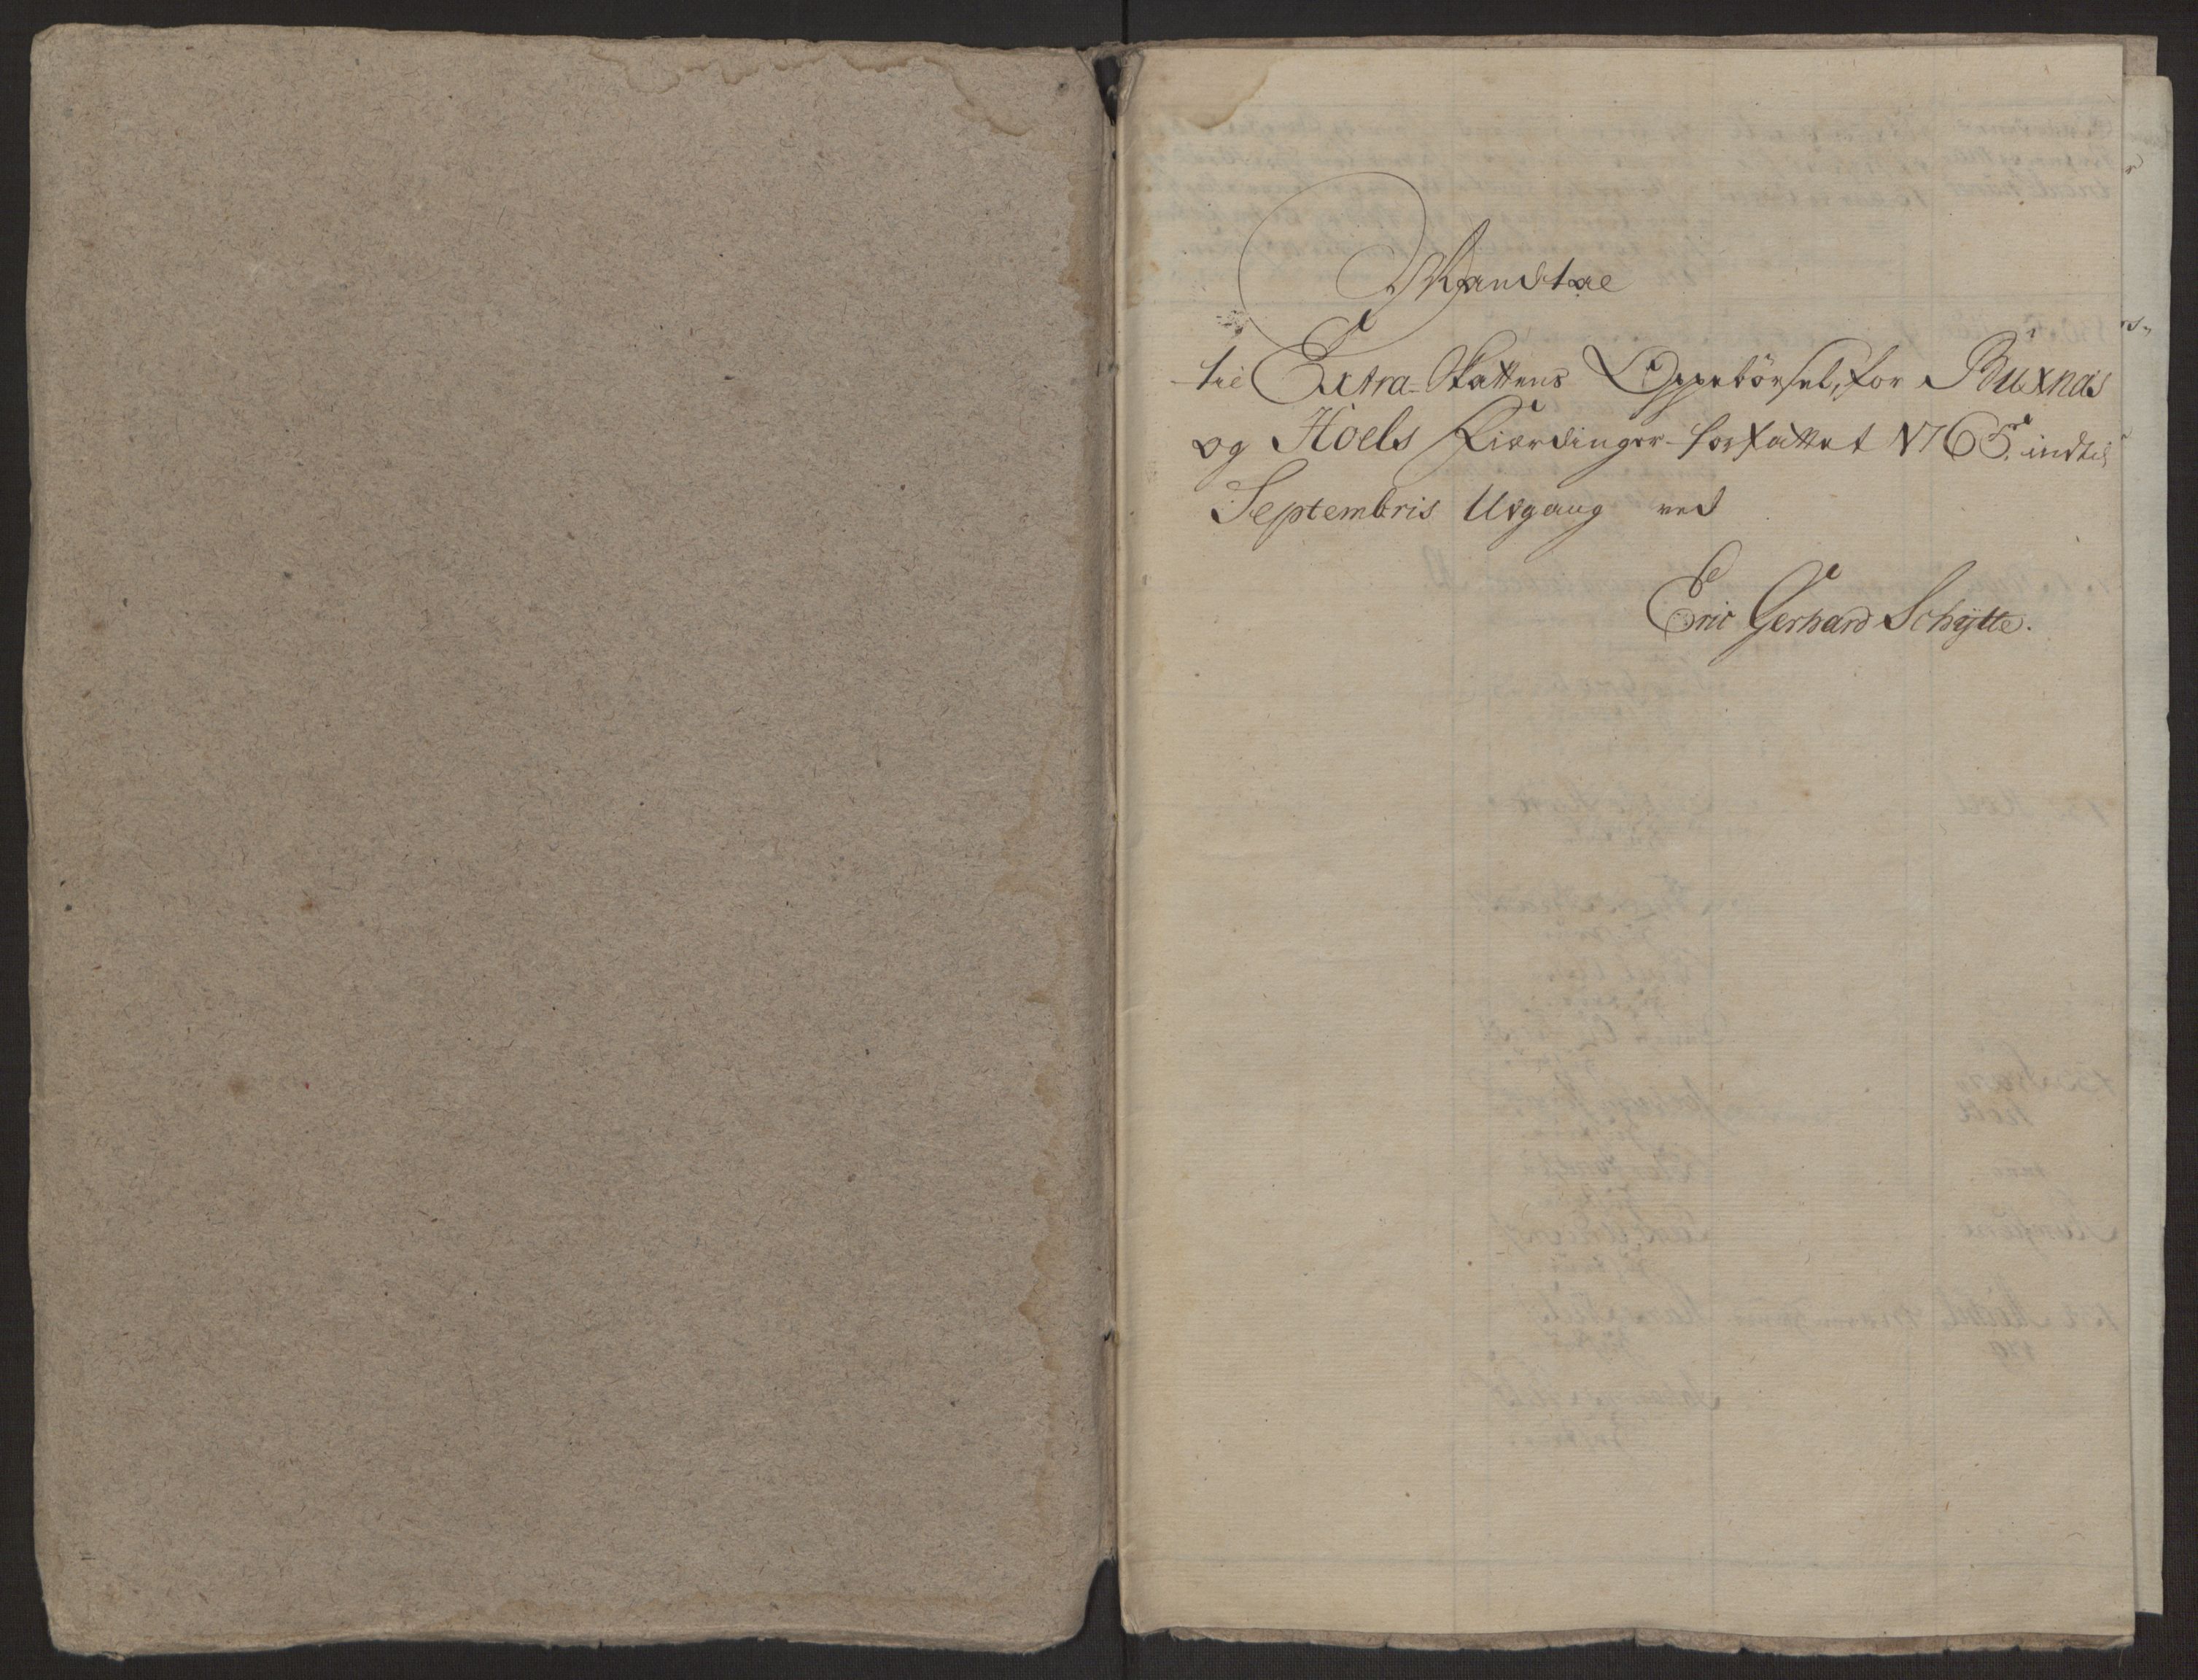 Mandtal
til Extra-Skattens Oppebörsel, for Buxnæs
og Hoels Fierdinger forfattet 1765, indtil
Septembris Udgang ved
Eric Gerhard Schÿtte.